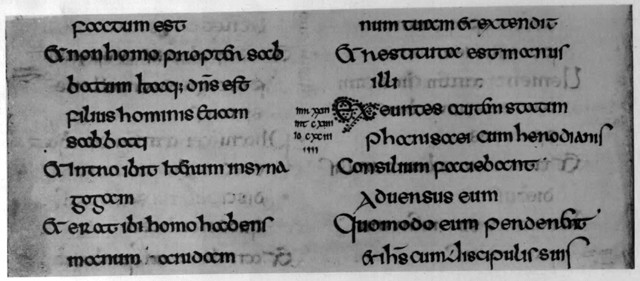 factum est
& non homo propter sab
batum itaq; dns est
filius hominis &iam
sabbati
& introibit iterum in syna
gogam
& erat ibi homo habens
manum aridam
num tuam & extendit
& restituta est manus
illi
Exeuntes autem statim
pharisaei cum herodianis
Consilium faciebant
Aduersus eum
Quomodo eum perderent
& ihs cum discipulis suis